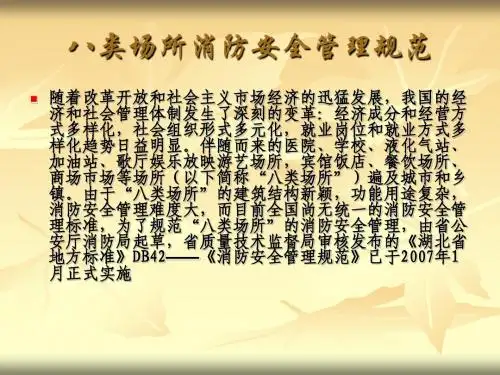 八类场所消防安全管理规范
随着改革开放和社会主义市场经济的迅猛发展，我国的经
济和社会管理体制发生了深刻的变革：经济成分和经营方
式多样化，社会组织形式多元化，就业岗位和就业方式多
样化趋势日益明显。伴随而来的医院、学校、液化气站、
加油站、歌厅娱乐放映游艺场所，宾馆饭店、餐饮场所、
商场市场等场所（以下简称“八类场所”）遍及城市和乡
镇。由于“八类场所”的建筑结构新颖，功能用途复杂，
消防安全管理难度大，而目前全国尚无统一的消防安全管
理标准，为了规范“八类场所”的消防安全管理，由省公
安厅消防局起草，省质量技术监督局审核发布的《湖北省
地方标准》DB42——《消防安全管理规范》已于2007年1
月正式实施